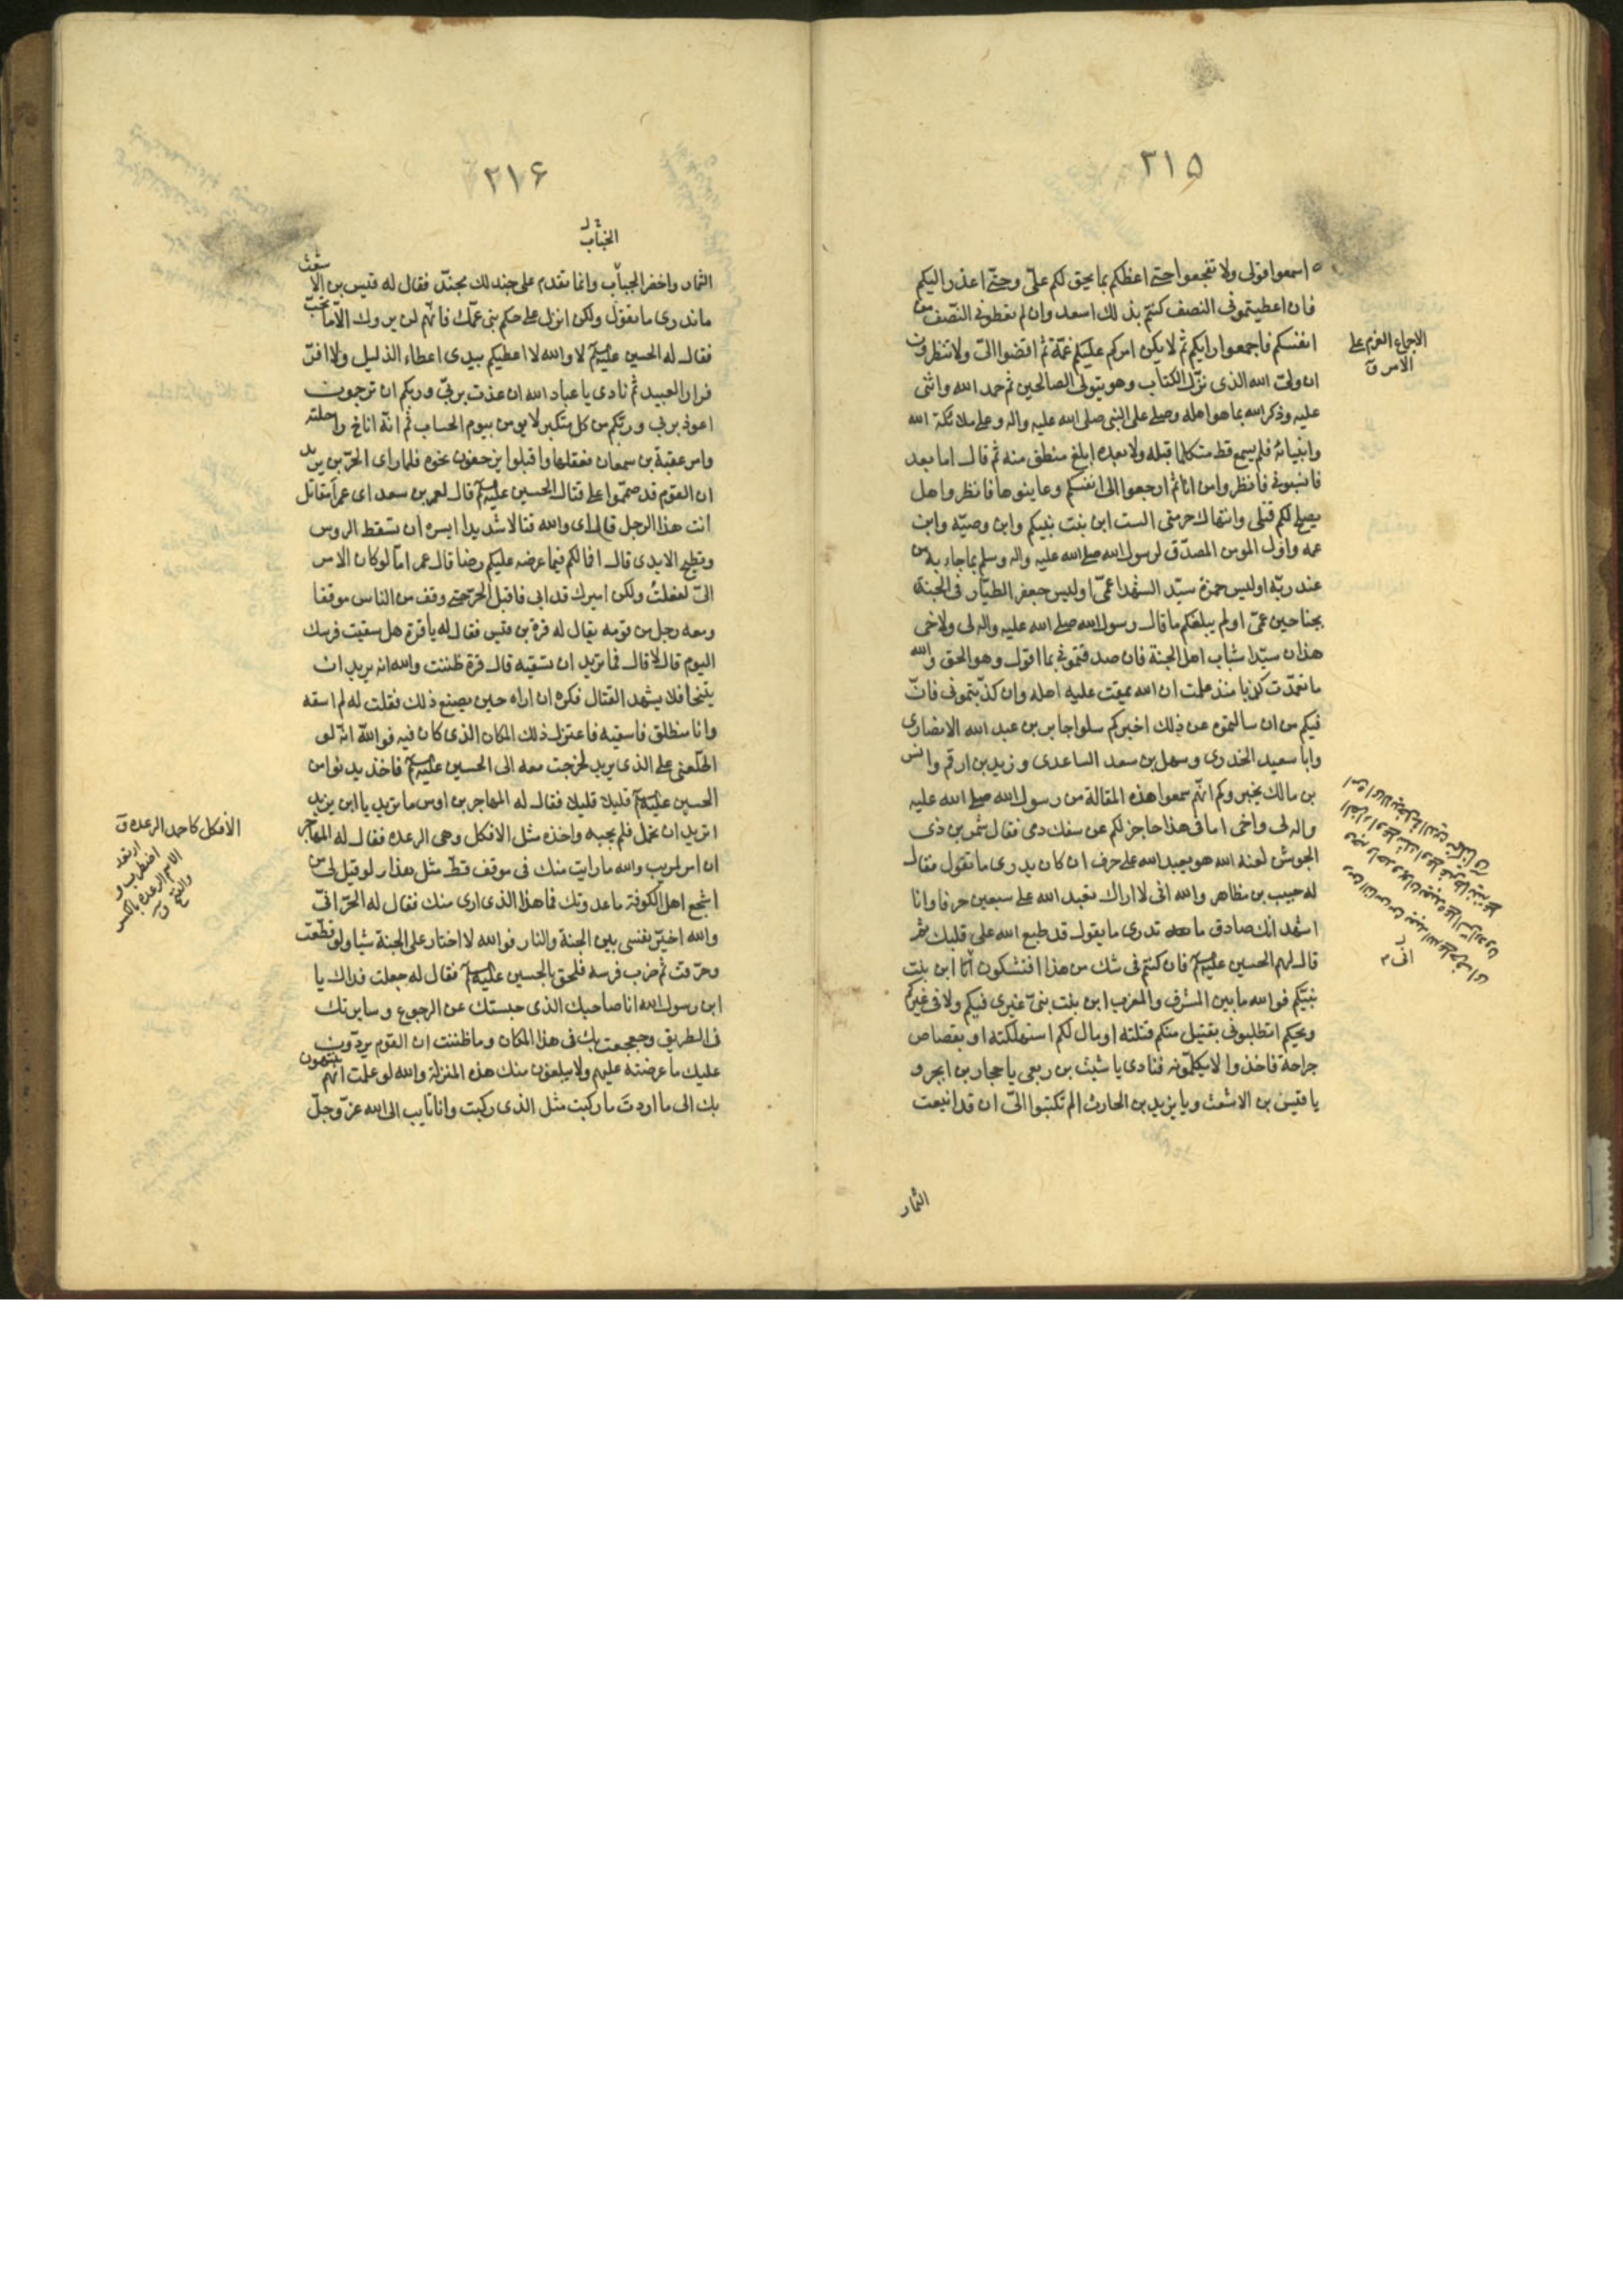 ٢١٥
اسمعوا قولى ولا تعجلوا حتى اعظكم بما يحق لكم علىّ وحتى اعذر اليكم
فان اعطيتمونى النصف كنتم بذلك اسعد وان لم تعطونى النّصف من
انفسكم فاجمعوا رايكم ثم لا يكن امركم عليكم غمّة ثم اقضوا الىّ ولا تنظرون
ان ولىّ الله الذى نزّل الكتاب وهو يتولى الصالحين ثم حمد الله واثنى
عليه وذكر الله بما هو اهله وصلى على النبى صلى الله عليه واله وعلى ملائكة الله
وانبيائه فلم يسمع قط متكلما قبله ولا بعده ابلغ منطق منه ثم قال اما بعد
فانسبونى فانظروا من انا ثم ارجعوا الى انفسكم وعاينوها فانظروا هل
يصلح لكم قتلى وانتهاك حرمتى الست ابن بنت نبيكم وابن وصيّه وابن
عمه واول المومن المصدّق لرسول الله صلى الله عليه واله وسلم بما جاء به من
عند ربّه اوليس حمزة سيّد الشهدا عمّى اوليس جعفر الطيّار فى الجنة
بجناحين عمّى اولم يبلغكم ما قال رسول الله صلى الله عليه واله لى ولاخى
هذان سيّدا شباب اهل الجنة فان صدقتمونى بما اقول وهو الحق والله
ما تعمّدت كذبا منذ علمت ان الله يمقت عليه اهله وان كذّبتمونى فانّ
فيكم من ان سالتموه عن ذلك اخبركم سلوا جابر بن عبد الله الانصارى
وابا سعيد الخدرى وسهل بن سعد الساعدى وزيد بن ارقم وانس
بن مالك يخبروكم انهم سمعوا هذه المقالة من رسول الله صلى الله عليه
واله لى واخى اما فى هذا حاجز لكم عن سفك دمى فقال شمر بن ذى
الجوشن لعنه الله هو يعبد الله على حرف ان كان يدرى ما تقول فقال
له حبيب بن مظاهر والله انى لاراك تعبد الله على سبعين حرفا وانا
اشهد انك صادق ما تدرى ما يقول قد طبع الله على قلبك ثم
قال لهم الحسين عليه السلم فان كنتم فى شك من هذا افتشكون انا ابن بنت
نبيّكم فوالله ما بين المشرق والمغرب ابن بنت نبىّ غيرى فيكم ولا فى غيركم
ويحكم اتطلبونى بقتيل منكم قتلته او مال لكم استهلكته او بقصاص
جراحة فاخذوا لا يكلّمونه فنادى يا شبث بن ربعى يا حجار بن ابجر و
يا قيس بن الاشعث ويا يزيد بن الحارث الم تكتبوا الىّ ان قد اينعت
الثمار
الاجماع العزم على
الامر ق
٢١۶
الثمار واخضر الجناب وانما تقدم على جند لك مجنّد فقال له قيس بن الاشعث
ما ندرى ما تقول ولكن انزل على حكم بنى عمّك فانهم لن يروك الا ما تحبّ
فقال له الحسين عليه السلم لا والله لا اعطيكم بيدى اعطاء الذليل ولا افرّ
فرار العبيد ثم نادى يا عباد الله ان عذت بربّى وربكم ان ترجمون
اعوذ بربى وربّكم من كل متكبر لا يومن بيوم الحساب ثم انّه اناخ راحلته
وامر عقبة بن سمعان فعقلها واقبلوا يزحفون نحوه فلما راى الحرّ بن يزيد
ان القوم قد صمّموا على قتال الحسين عليه السلم قال لعمر بن سعد اى عمر امقاتل
انت هذا الرجل قال اى والله قتالا شديدا ايسره ان تسقط الروس
وتطيح الايدى قال افما لكم فيما عرضه عليكم رضا قال عمر اما لو كان الامر
الىّ لفعلت ولكن اميرك قد ابى فاقبل الحرّ حتى وقف من الناس موقفا
ومعه رجل من قومه يقال له قرة بن قيس فقال له يا قرة هل سقيت فرسك
اليوم قال لا قال فما تريد ان تسقيه قال قرة ظننت والله انه يريد ان
يتنحا فلا يشهد القتال فكره ان اراه حين يصنع ذلك فقلت له لم اسقه
وانا منطلق فاسقيه فاعتزل ذلك المكان الذى كان فيه فوالله انّه لو
اطلعنى على الذى يريد لخرجت معه الى الحسين عليه السلم فاخذ يدنوا من
الحسين عليه السلم قليلا قليلا فقال له المهاجر بن اوس ما تريد يا ابن يزيد
اتريد ان تحمل فلم يجبه واخذه مثل الافكل وهى الرعده فقال له المهاجر
ان امرك لمريب والله ما رايت منك فى موقف قطّ مثل هذا ولو قيل لى من
اشجع اهل الكوفة ما عدوتك فما هذا الذى ارى منك فقال له الحرّ انىّ
والله اخيّر نفسى بين الجنة والنار فوالله لا اختار على الجنة شيا ولو قطّعت
وحرّقت ثم ضرب فرسه فلحق بالحسين عليه السلم فقال له جعلت فداك يا
ابن رسول الله انا صاحبك الذى حبستك عن الرجوع وسايرتك
فى الطريق وجعجعت بك فى هذا المكان وما ظننت ان القوم يردّون
عليك ما عرضته عليهم ولا يبلغون منك هذه المنزلة والله لو علمت انهم ينتهون
بك الى ما اردتَ ما ركبت مثل الذى ركبت وانا تايب الى الله عزّ وجلّ
الافكل كاحمد الرعدة ق
ارتعد
اضطرب و
الاسم الرعدة بالكسر
والفتح ق